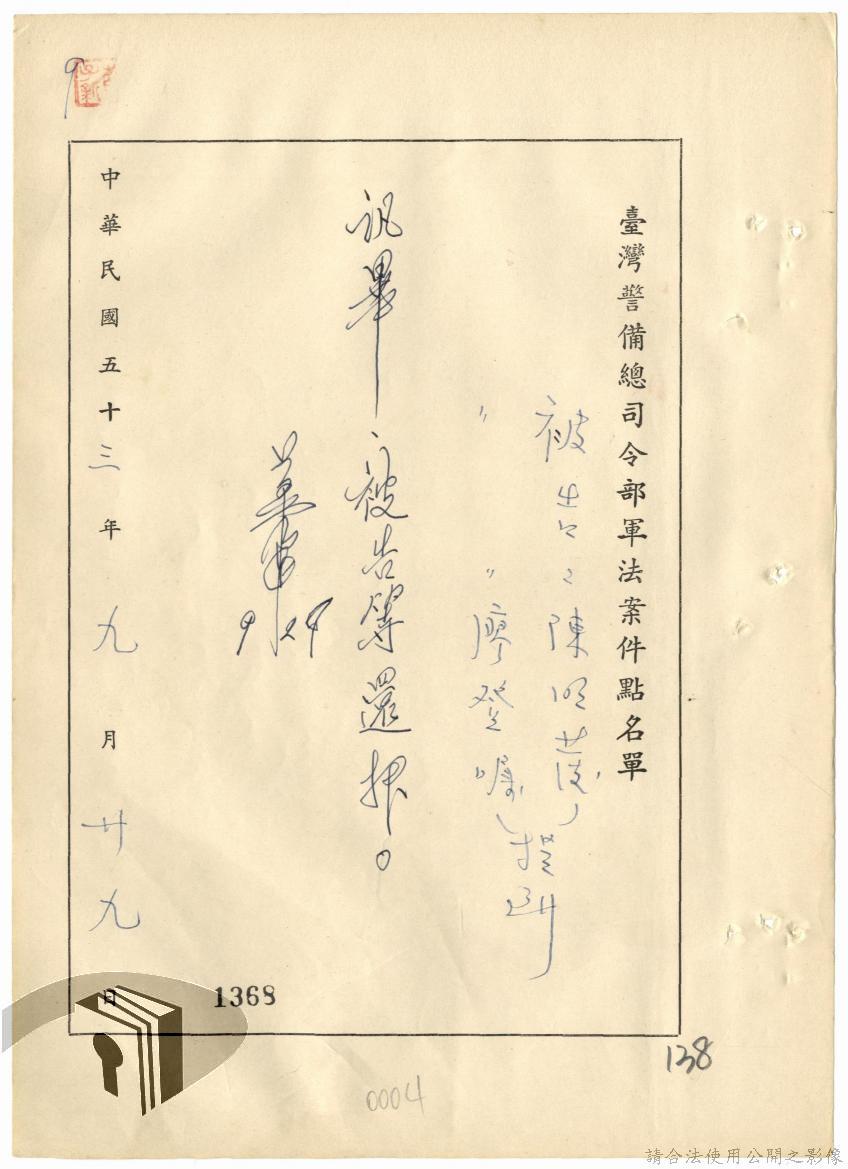 臺灣警備總司令部軍法案件點名單
被告:陳明發
〃 〃 廖登囑
(提訊)
訊畢、被告等還押。
9/29
中華民國五十三年九月廿九日
1368
138
0004
請合法使用公開之影像